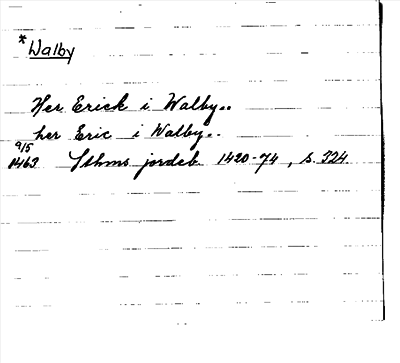 * Walby
Her Erick i Walby..
her Eric i Walby..
9/5
1463 Sthms jordeb. 1420-74, s. 324